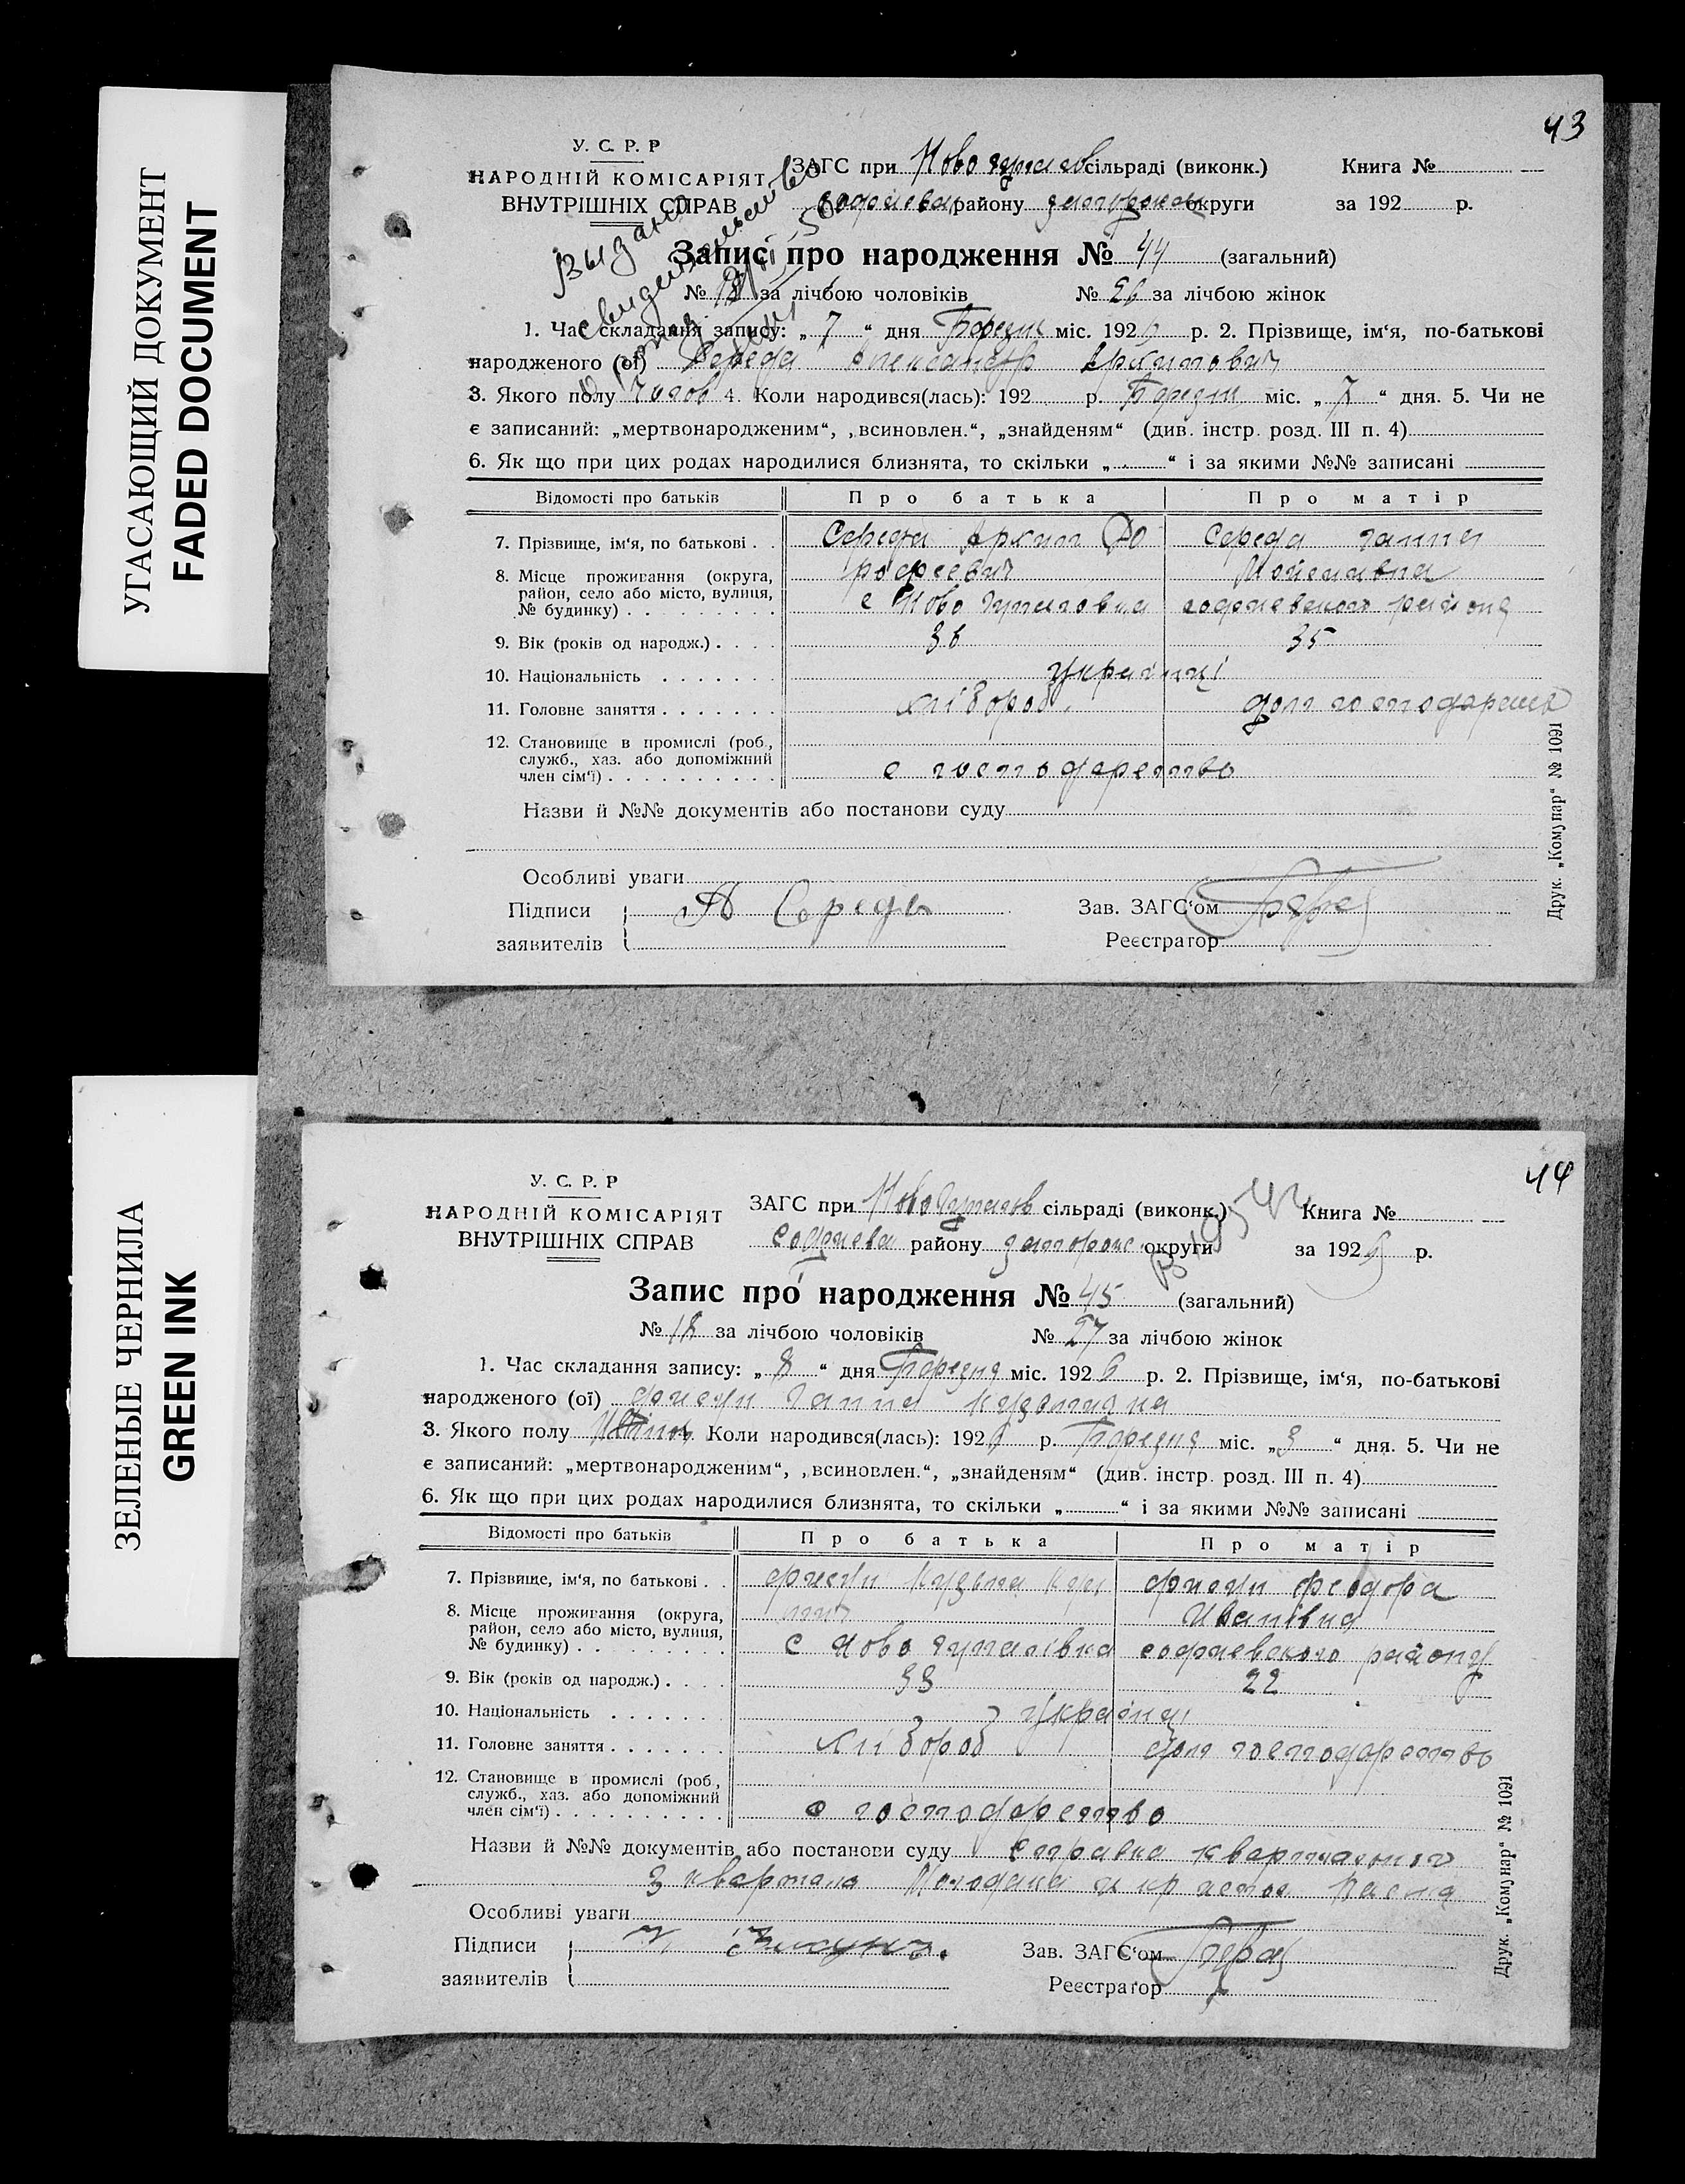 УГАСАЮЩИЙ ДОКУМЕНТ
FADED DOCUMENT
43
У. С. Р. Р
НАРОДНІЙ КОМІСАРІЯТ
ВНУТРІШНІХ СПРАВ
ЗАГС при сільраді (виконк.) Книга №
району округи за 192 р.
Выдано
свидетельство
Запис про народження № 44 (загальний)
№ 18 за лічбою чоловіків № 26 за лічбою жінок
1. Час складання запису: „ 7 “ дня Березня міс. 1926 р. 2. Прізвище, ім‘я, по-батькові
народженого (ої) Середа Олександр Архипович
3. Якого полу Чолов 4. Коли народився(лась): 192 р. Березня міс. „ 7 “ дня. 5. Чи не
є записаний: „мертвонародженим“, „всиновлен.“, „знайденям“ (див. інстр. розд. III п. 4)
6. Як що при цих родах народилися близнята, то скільки „ “ і за якими №№ записані
Відомості про батьків Про батька Про матір
7. Прізвище, ім‘я, по батькові . . Середа Архип До Середа Ганна
рофеевич
8. Місце проживання (округа,
район, село або місто, вулиця,
№ будинку) . . . . . . . . с Ново софиевского района
9. Вік (років од народж.) . . . . 36 35
10. Національність . . . . . . . українці
11. Головне заняття . . . . . . . хлібороб дом господарка
12. Становище в промислі (роб.,
служб., хаз. або допоміжний
член сім‘ї) . . . . . . . . . . с господарство
Назви й №№ документів або постанови суду
Особливі уваги
Підписи А Середа Зав. ЗАГС‘ом
заявителів Реєстратор
Друк. „Комунар“ № 1091
ЗЕЛЕНЫЕ ЧЕРНИЛА
GREEN INK
44
У. С. Р. Р
НАРОДНІЙ КОМІСАРІЯТ
ВНУТРІШНІХ СПРАВ
ЗАГС при сільраді (виконк.) Книга №
софиева району запорожс округи за 1926 р.
Запис про народження № 45 (загальний)
№ 18 за лічбою чоловіків № 27 за лічбою жінок
1. Час складання запису: „ 8 “ дня Березня міс. 1926 р. 2. Прізвище, ім‘я, по-батькові
народженого (ої) Ганна
3. Якого полу Коли народився(лась): 1926 р. Березня міс. „ 3 “ дня. 5. Чи не
є записаний: „мертвонародженим“, „всиновлен.“, „знайденям“ (див. інстр. розд. III п. 4)
6. Як що при цих родах народилися близнята, то скільки „ “ і за якими №№ записані
Відомості про батьків Про батька Про матір
7. Прізвище, ім‘я, по батькові . . Кузьма феодора
8. Місце проживання (округа, Иванівна
район, село або місто, вулиця,
№ будинку) . . . . . . . . с Ново софиевского району
9. Вік (років од народж.) . . . . 33 22
10. Національність . . . . . . . українці
11. Головне заняття . . . . . . . хлібороб дом господарство
12. Становище в промислі (роб.,
служб., хаз. або допоміжний
член сім‘ї) . . . . . . . . . . с господарство
Назви й №№ документів або постанови суду справка квартального
3 квартала
Особливі уваги
Підписи Зав. ЗАГС‘ом
заявителів Реєстратор
Друк. „Комунар“ № 1091